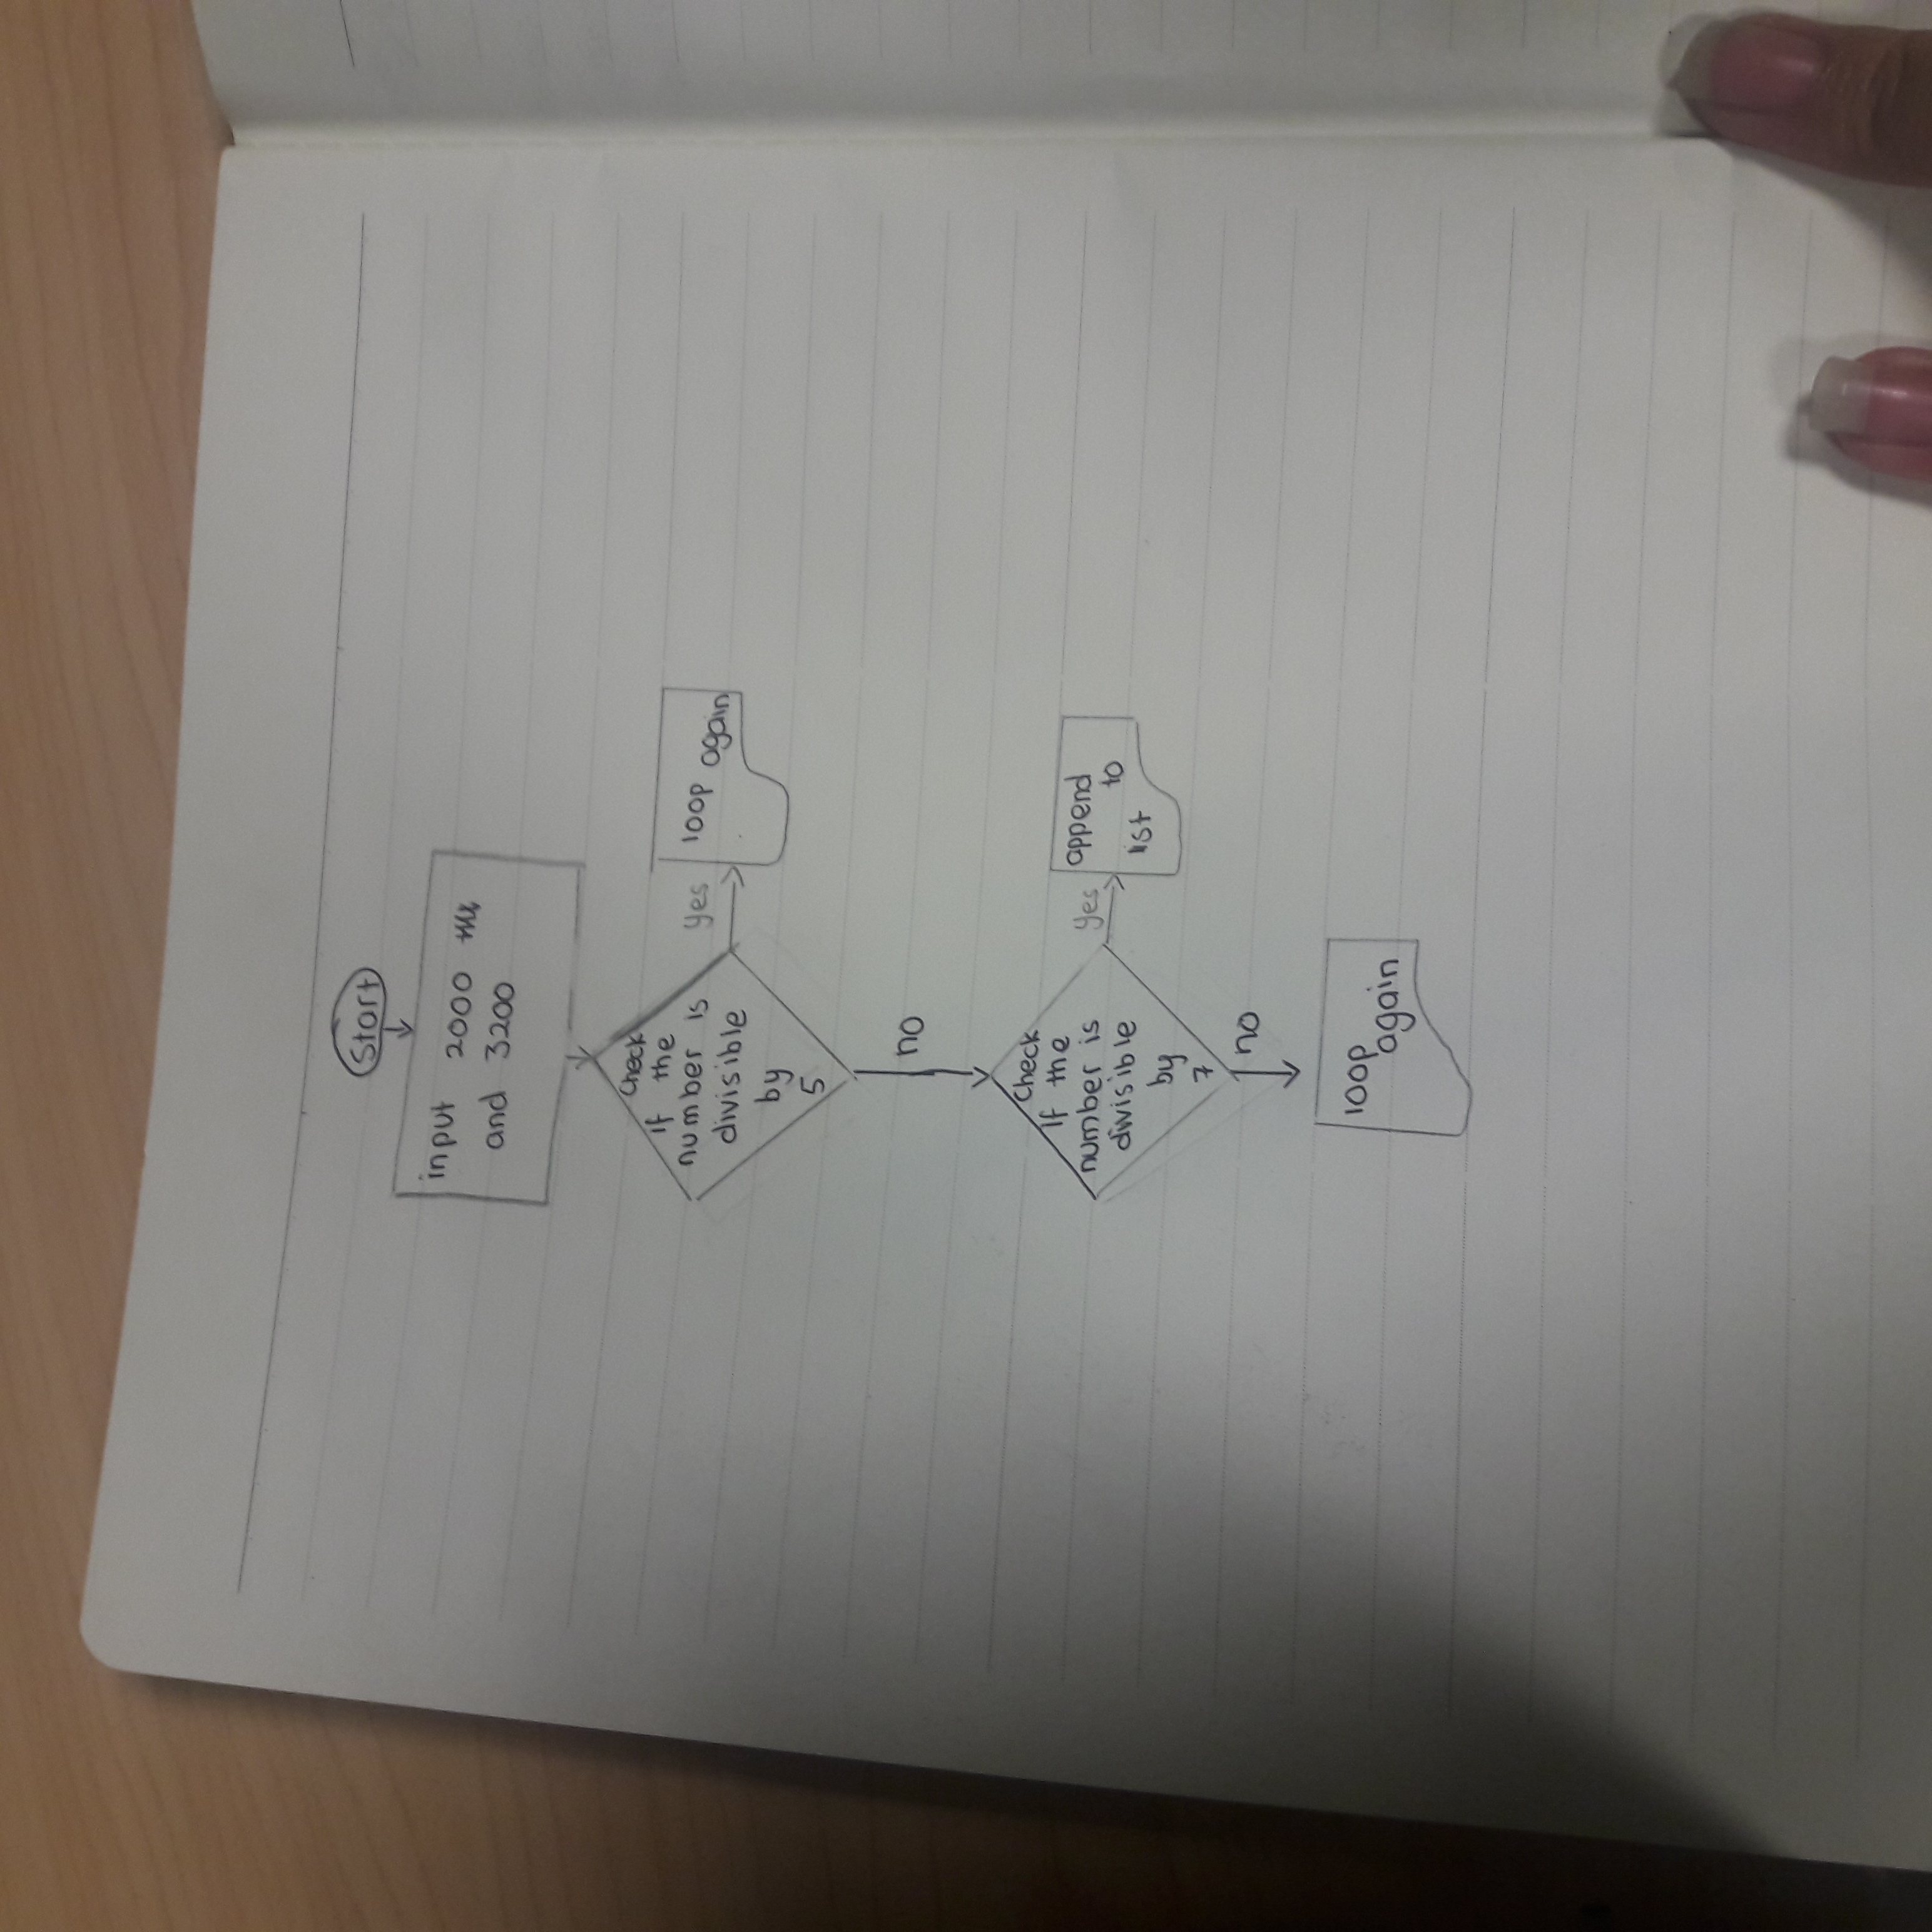 Start
input 2000
and 3200
Check
if the
number is
divisible
by
5
yes
loop again
no
Check
if the
number is
divisible
by
7
yes
append
to
list
no
loop
again